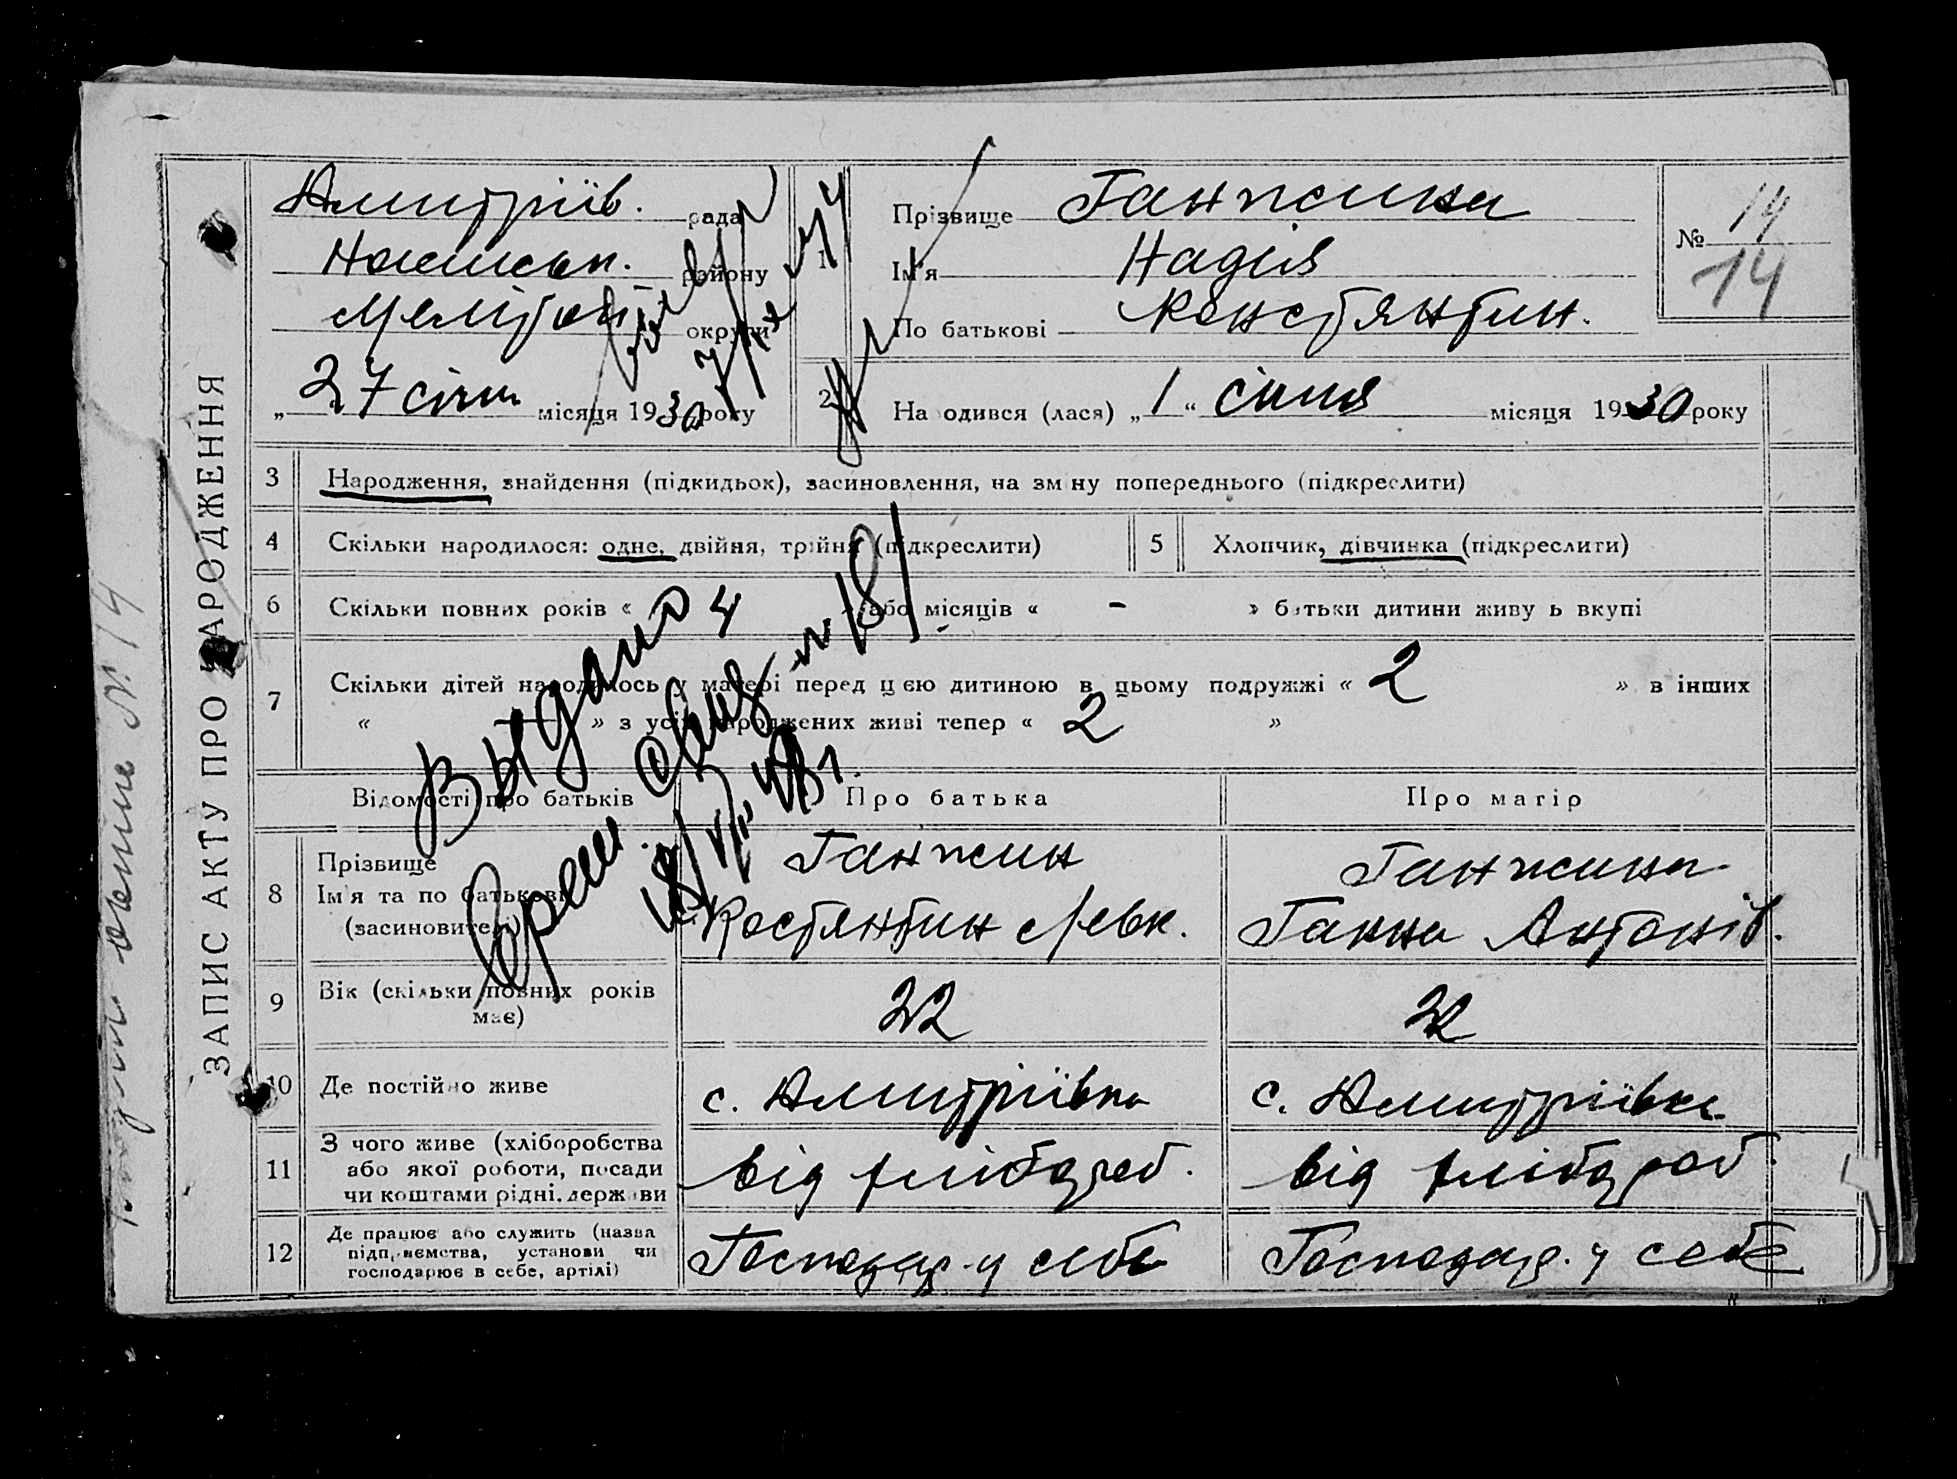 ЗАПИС АКТУ ПРО НАРОДЖЕННЯ
Дмитріїв. рада
району
Меліт. округи
„ 27 січн. місяця 1930 року
1
Прізвище Ганжина
Ім'я Надія
По батькові Констянтин.
№ 14
14
2
Народився (лася) „ 1 “ січня місяця 1930 року
3 Народження, знайдення (підкидьок), засиновлення, на зміну попереднього (підкреслити)
4 Скільки народилося: одне, двійня, трійня (підкреслити)
5 Хлопчик, дівчинка (підкреслити)
6 Скільки повних років « » або місяців « - » батьки дитини живуть вкупі
7 Скільки дітей народилось у матері перед цією дитиною в цьому подружжі « 2 » в інших
« » з усіх народжених живі тепер « 2 »
Выдано
Відомості про батьків
Про батька
Про матір
8 Прізвище
Ім'я та по батькові
(засиновителі)
Ганжин
Костянтин Левк.
Ганжина
Ганна Антонів.
9 Вік (скільки повних років
має)
22
22
10 Де постійно живе
с. Дмитріївка
с. Дмитріївка
11 З чого живе (хліборобства
або якої роботи, посади
чи коштами рідні, держави
від хлібороб.
від хлібороб.
12 Де працює або служить (назва
підприємства, установи чи
господарює в себе, артілі)
Господар. у себе
Господар. у себе